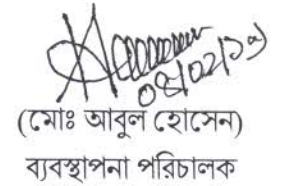 ০৪/০২/১৯
(মোঃ আবুল হোসেন)
ব্যবস্থাপনা পরিচালক